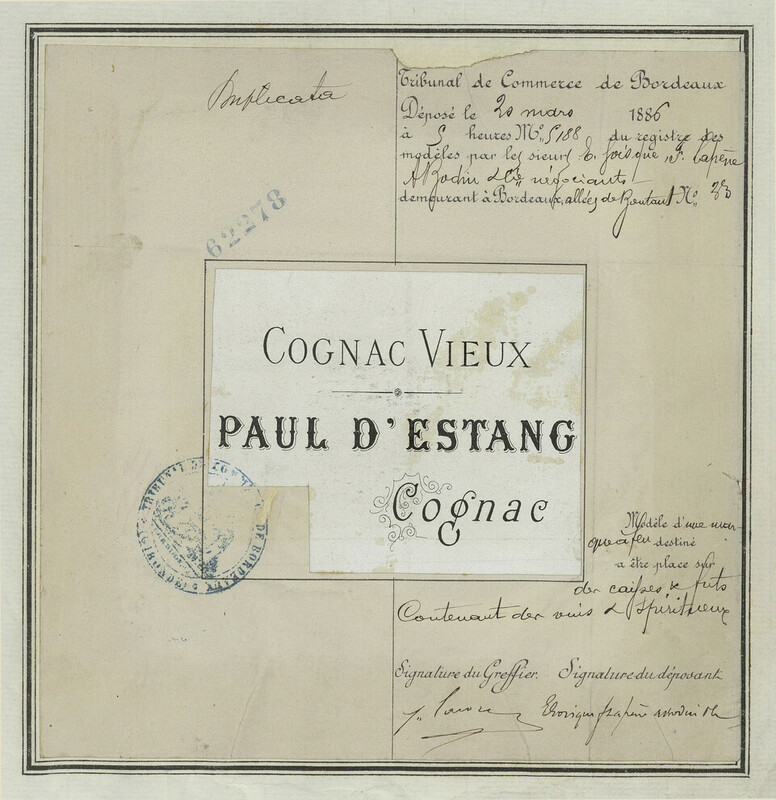 Duplicata
Tribunal de Commerce de Bordeaux
Déposé le 20 mars 1886
à 5 heures No. 5188 du registre des
modèles par les sieurs
négociants
demeurant à Bordeaux, allées de Boutaut No. 23
62278
COGNAC VIEUX
PAUL D'ESTANG
Cognac
TRIBUNAL DE COMMERCE DE BORDEAUX
Modèle d'une mar
que à feu destiné
a être place sur
des caisses & futs
Contenant des vins & spiritueux
Signature du Greffier. Signature du déposant